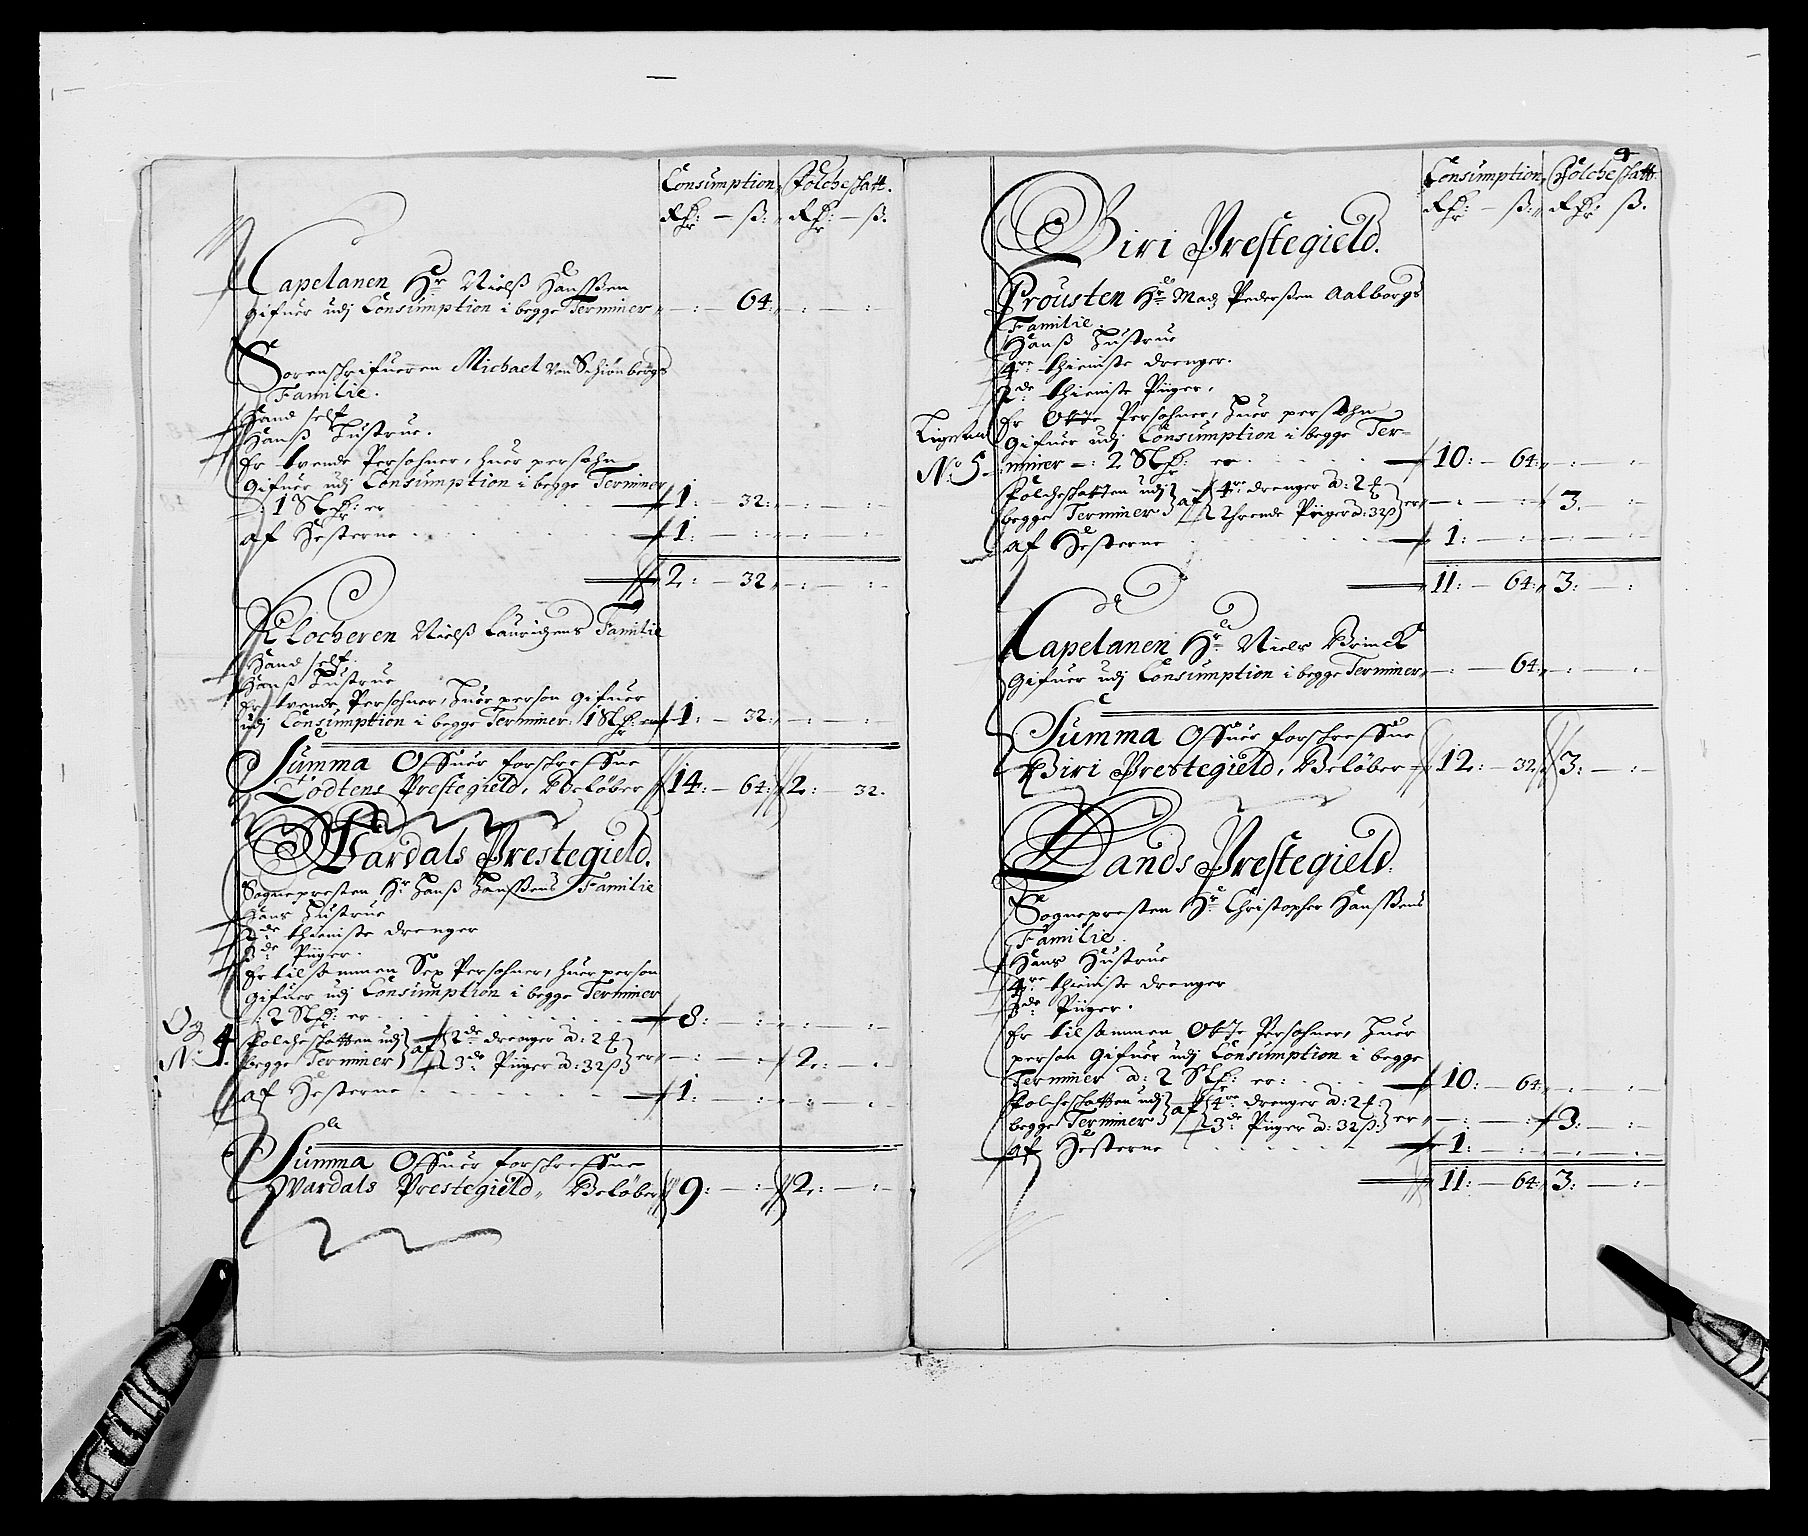 Consumption, Folcheskatt.
Rdr: — ß: Rdr: — ß.
Capelanen Hr Nielß Hanssen
Gifuer udj Consumption i begge Terminer — : — 64: — : — :
Sorenschrifueren Michael von Schiønbergs
Familie.
Hand self
Hanß Hustrue.
Er tvende Persohner, huer persohn
Gifuer udj Consumption i begge Terminer
: 1 Rdr: er 1: — 32: — : — :
af Hesterne 1: — : — : — :
2: — 32 — : — :
Klocheren Nielß Lauridzens Familie
Hand self
Hanß Hustrue
Er tvende Persohner, huer person Gifuer
udj Consumption i begge Terminer: 1 Rdr: er 1: — 32: — : — :
Summa Offuer forschreffne
Todtens Prestegield, Beløber 14: — 64: 2: — 32.
Vardals Prestegield.
Sognepresten Hr Hanß Hanssens Familie
Hans Hustrue
2de thieniste drenger
3de Piiger.
Er tilsammen Sex Persohner, huer person
Gifuer udj Consumption i begge Terminer
: 2 Rdr: er 8: — : — : — :
Og
No 4.
Folcheskatten udj begge Terminer af 2de drenger a: 2 ₰
3de Piiger a: 32 ß er — : — : 2: — :
af Hesterne 1: — : — : — :
Summa Offuer forschreffne
Wardals Prestegield, Beløber 9: — : 2: — :
4
Consumption, Folcheskatt.
Rdr: — ß: Rdr: ß.
Biri Prestegield.
Prousten Hr Madz Pedersen Aalborgs
Familie.
Hanß Hustrue
4re thieniste drenger.
2de thieniste Piiger.
Er Otte Persohner, huer persohn
Gifuer udj Consumption i begge Ter-
No 5
miner —: 2 Rdr: er 10: — 64: — : — :
Folcheskatten udj begge Terminer af 4re drenger a: 2 ₰
2 thrende Piiger a: 32 ß er — : — : 3: — :
af Hesterne 1: — : — : — :
11: — 64: 3: — :
Capelanen Hr Niels Brinck
Gifuer udj Consumption i begge Terminer — : — 64: — : — :
Summa Offuer forschreffne
Biri Prestegield, Beløber 12: — 32: 3: — :
Lands Prestegield.
Sognepresten Hr Christopher Hanssens
Familie.
Hans Hustrue
4re thieniste drenger
3de Piiger.
Er tilsammen Otte Persohner, huer
person Gifuer udj Consumption i begge
Terminer a: 2 Rdr: er: 10: — 64: — : — :
Folcheskatten udj begge Terminer af 4re drenger a: 2 ₰
3de Piiger a: 32 ß er — : — : 3: — :
af Hesterne 1: — : — : — :
11: — 64: 3: — :